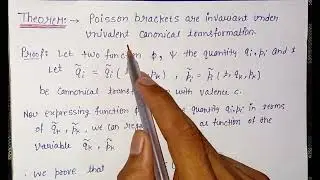 Theorem:→ Poisson brackets are invariant under
Univalent canonical transformation.
Proof: Let two function φ, ψ the quantity qi, pi and t
Let q̃i = q̃i ( qk, pk) , p̃i = p̃i (t, qk, pk)
be canonical transformation with valence c.
Now expressing function quantity qi, pi in terms
of q̃k, p̃k, we can re as function of the
variable q̃k, p̃k
we prove that